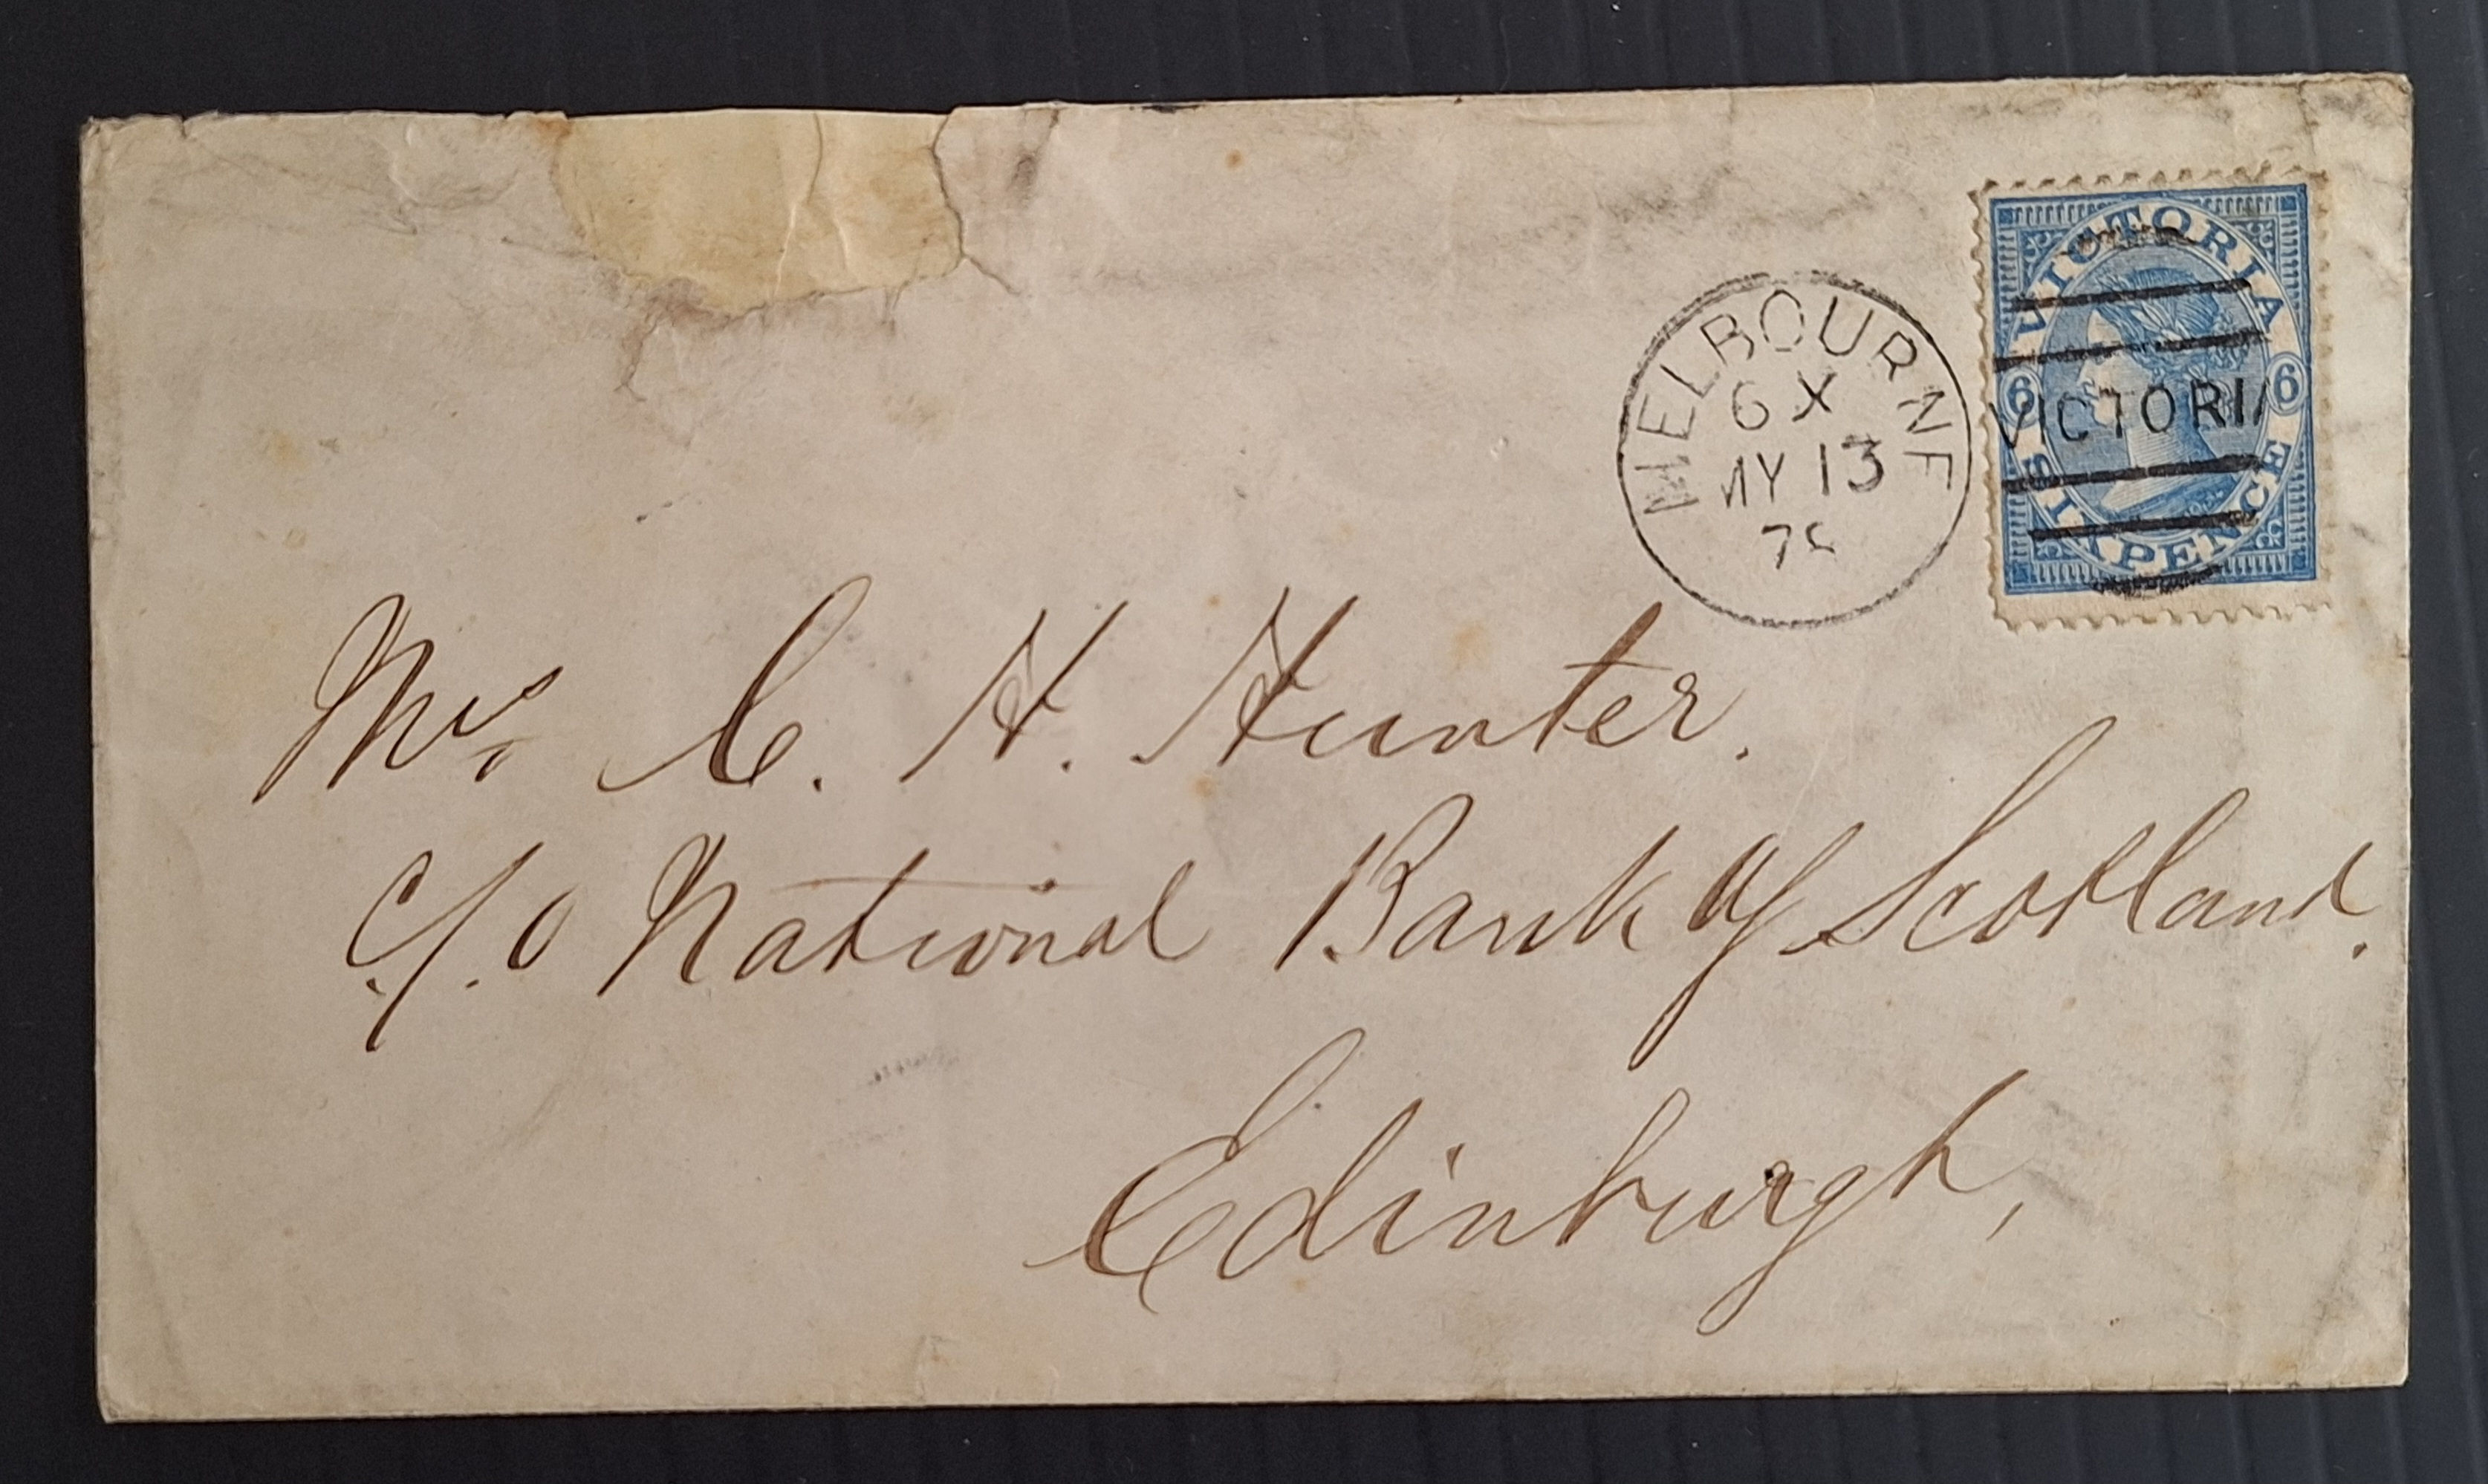 VICTORIA
6 6
SIX PENCE
VICTORIA
MELBOURNE
6 X
MY 13
Mrs C. H. Hunter.
C/o National Bank of Scotland.
Edinburgh,